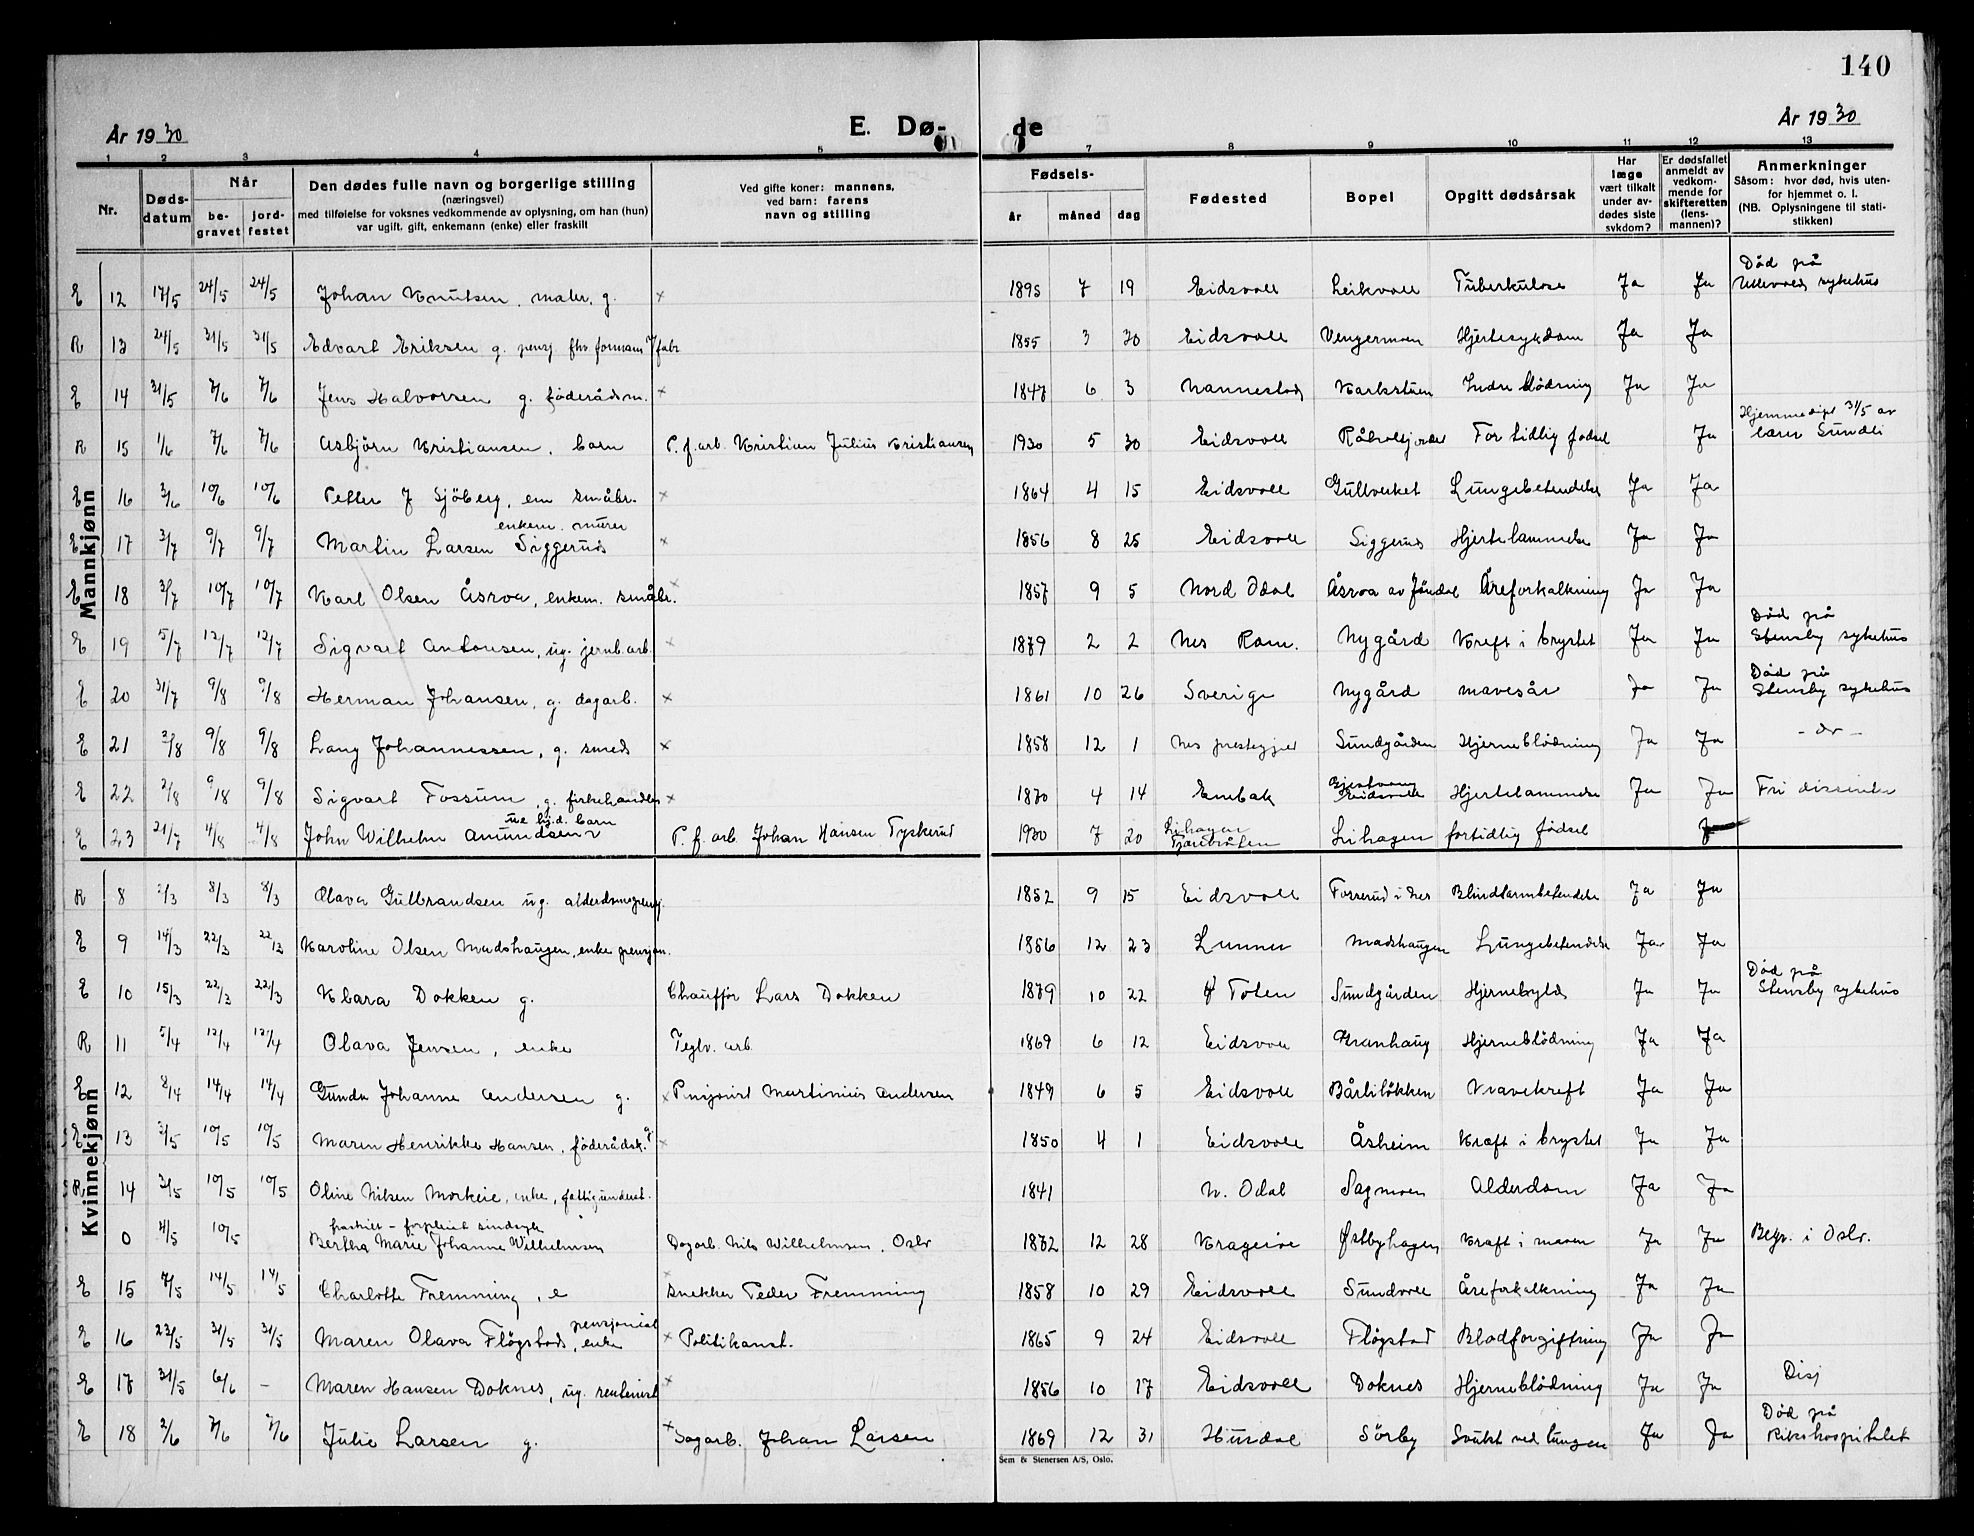 140
År 1930
E. Dø- de
År 1930
1 2 3 4 5 7 8 9 10 11 12 13
Nr.
Døds-datum
Når
be-gravet
jord-festet
Den dødes fulle navn og borgerlige stilling
(næringsvei)
med tilføielse for voksnes vedkommende av oplysning, om han (hun)
var ugift, gift, enkemann (enke) eller fraskilt
Ved gifte koner: mannens,
ved barn: farens
navn og stilling
Fødsels-
år måned dag
Fødested
Bopel
Opgitt dødsårsak
Har læge vært tilkalt under av-dødes siste sykdom?
Er dødsfallet anmeldt av vedkom-mende for skifteretten (lens-mannen)?
Anmerkninger
Såsom: hvor død, hvis uten-for hjemmet o. l.
(NB. Oplysningene til stati-stikken)
Mannkjønn
E 12 17/5 24/5 24/5 Johan Knutsen, maler, g. x 1895 7 19 Eidsvoll Leikvoll Tuberkulose Ja Ja Død på Ullevoll sykehus
R 13 24/5 31/5 31/5 Edvart Eriksen g. pensj fhv formann v/fabr 1855 3 30 Eidsvoll Vengermoen Hjertesykdom Ja Ja
E 14 31/5 7/6 7/6 Jens Halvorsen g. föderådsm. x 1847 6 3 Nannestad Karkstuen Indre blödning Ja Ja
R 15 1/6 7/6 7/6 Asbjörn Kristiansen, barn P. f. arb. Kristian Julius Kristiansen 1930 5 30 Eidsvoll Råholtjordet For tidlig fødsel Ja Hjemmedöpt 31/5 av lærer Sundli
E 16 3/6 10/6 10/6 Petter J Sjöberg, em småbr. x 1864 4 15 Eidsvoll Gullverket Lungebetendelse Ja Ja
E 17 3/7 9/7 9/7 Martin Larsen Siggerud enkem. murer x 1856 8 25 Eidsvoll Siggerud Hjertelammelse Ja Ja
E 18 3/7 10/7 10/7 Karl Olsen Åsroa, enkem. småbr. x 1857 9 5 Nord Odal Åsroa av Jöndal Åreforkalkning Ja Ja
E 19 5/7 12/7 12/7 Sigvart Antonsen, ug. jernb.arb. x 1879 2 2 Nes Rom. Nygård Kreft i brystet Ja Ja Død på Stensby sykehus
E 20 31/7 9/8 9/8 Herman Johansen, g. dagarb. x 1861 10 26 Sverige Nygård mavesår Ja Ja Død på Stensby sykehus
E 21 2/8 9/8 9/8 Lang Johannessen, g. smed x 1858 12 1 Nes prestegjeld Sundgården Hjerneblödning Ja Ja - do -
E 22 2/8 9/8 9/8 Sigvart Fossum, g. fiskehandler x 1870 4 14 Enebak Eidsvoll Hjertelammelse Ja Ja Fri dissenter
E 23 21/7 4/8 4/8 John Wilhelm Amundsen ue hj.d. barn P. f. arb. Johan Hansen Tyskerud 1930 7 20 Lihagen Lihagen fortidlig födsel Ja
Kvinnekjønn
R 8 2/3 8/3 8/3 Olava Gulbrandsen ug. alderdomspensj. 1852 9 15 Eidsvoll Fosserud i Nes Blindtarmbetendelse Ja Ja
E 9 14/3 22/3 22/3 Karoline Olsen Madshaugen, enke pensjon. 1856 12 23 Lunner Madshaugen Lungebetendelse Ja Ja
E 10 15/3 22/3 22/3 Klara Dokken g. Chauffør Lars Dokken 1879 10 22 Toten Sundgården Hjernebyld Ja Ja Død på Stensby sykehus
R 11 5/4 12/4 12/4 Olava Jensen, enke Teglv. arb. 1869 6 12 Eidsvoll Granhaug Hjerneblödning Ja Ja
E 12 8/4 14/4 14/4 Gunda Johanne Andersen g. x Pensjonist Martinius Andersen 1849 6 5 Eidsvoll Bårliløkken Mavekreft Ja Ja
E 13 3/5 10/5 10/5 Maren Henrikke Hansen, föderådsk. g x 1850 4 1 Eidsvoll Åsheim Kræft i brystet Ja Ja
R 14 3/5 10/5 10/5 Oline Nilsen Morkeie, enke, fattigunderst. 1841 N. Odal Sagmoen Alderdom Ja Ja
0 4/5 10/5 fraskilt – forpleiet sindssyk Bertha Marie Johanne Wilhelmsen Dagarb. Nils Wilhelmsen, Oslo 1872 12 28 Kragerø Østbyhagen Kræft i maven Ja Ja Begr. i Oslo.
E 15 7/5 14/5 14/5 Charlotte Fremming, e x snekker Peder Fremming 1858 10 29 Eidsvoll Sundvoll Åreforkalkning Ja Ja
E 16 23/5 31/5 31/5 Maren Olava Flögstad, pensjonist enke x Politikonst. 1865 9 24 Eidsvoll Flögstad Blodforgiftning Ja Ja
E 17 31/5 6/6 – Maren Hansen Doknes, ug. rentenist x 1856 10 17 Eidsvoll Doknes Hjerneblödning Ja Ja Disj
E 18 2/6 7/6 7/6 Julie Larsen g. x Dagarb. Johan Larsen 1869 12 31 Hurdal Sörby Svulst ved lungen Ja Ja Död på Rikshospitalet
Sem & Stenersen A/S, Oslo.